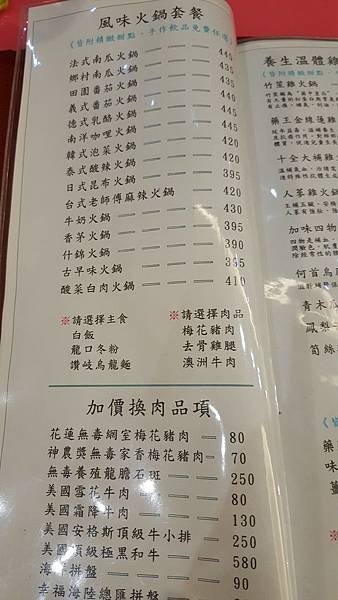 風味火鍋套餐
(皆附精緻甜點、手作飲品免費
法式南瓜火鍋 — 445
鄉村南瓜火鍋 — 435
田園番茄火鍋 — 435
義式番茄火鍋 — 435
德式乳酪火鍋 — 445
南洋咖哩火鍋 — 445
韓式泡菜火鍋 — 420
泰式酸辣火鍋 — 420
日式昆布火鍋 — 395
台式老師傅麻辣火鍋 — 420
牛奶火鍋 — 430
香茅火鍋 — 395
什錦火鍋 — 395
古早味火鍋 — 395
酸菜白肉火鍋 — 410
※請選擇主食
白飯
龍口冬粉
讚岐烏龍麵
※請選擇肉品
梅花豬肉
去骨雞腿
澳洲牛肉
加價換肉品項
花蓮無毒網室梅花豬肉 — 80
神農獎無毒家香梅花豬肉 — 70
無毒養殖龍膽石斑 — 250
美國雪花牛肉 — 80
美國霜降牛肉 — 130
美國安格斯頂級牛小排 — 250
美國頂級極黑和牛 — 580
海鮮拼盤 — 90
幸福海陸總匯拼盤
養生溫體雞
(皆附精緻甜點、
竹笙雞火鍋
藥王金線蓮雞
十全大補雞火
人蔘雞火鍋
加味四物
何首烏風
青木瓜
鳳梨
筍絲